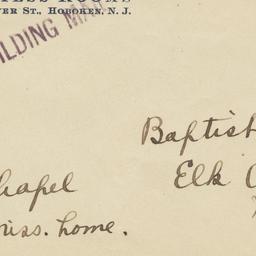 ver St., Hoboken, N. J.
ilding Ma
Baptis
Elk
hapel
iss. home.